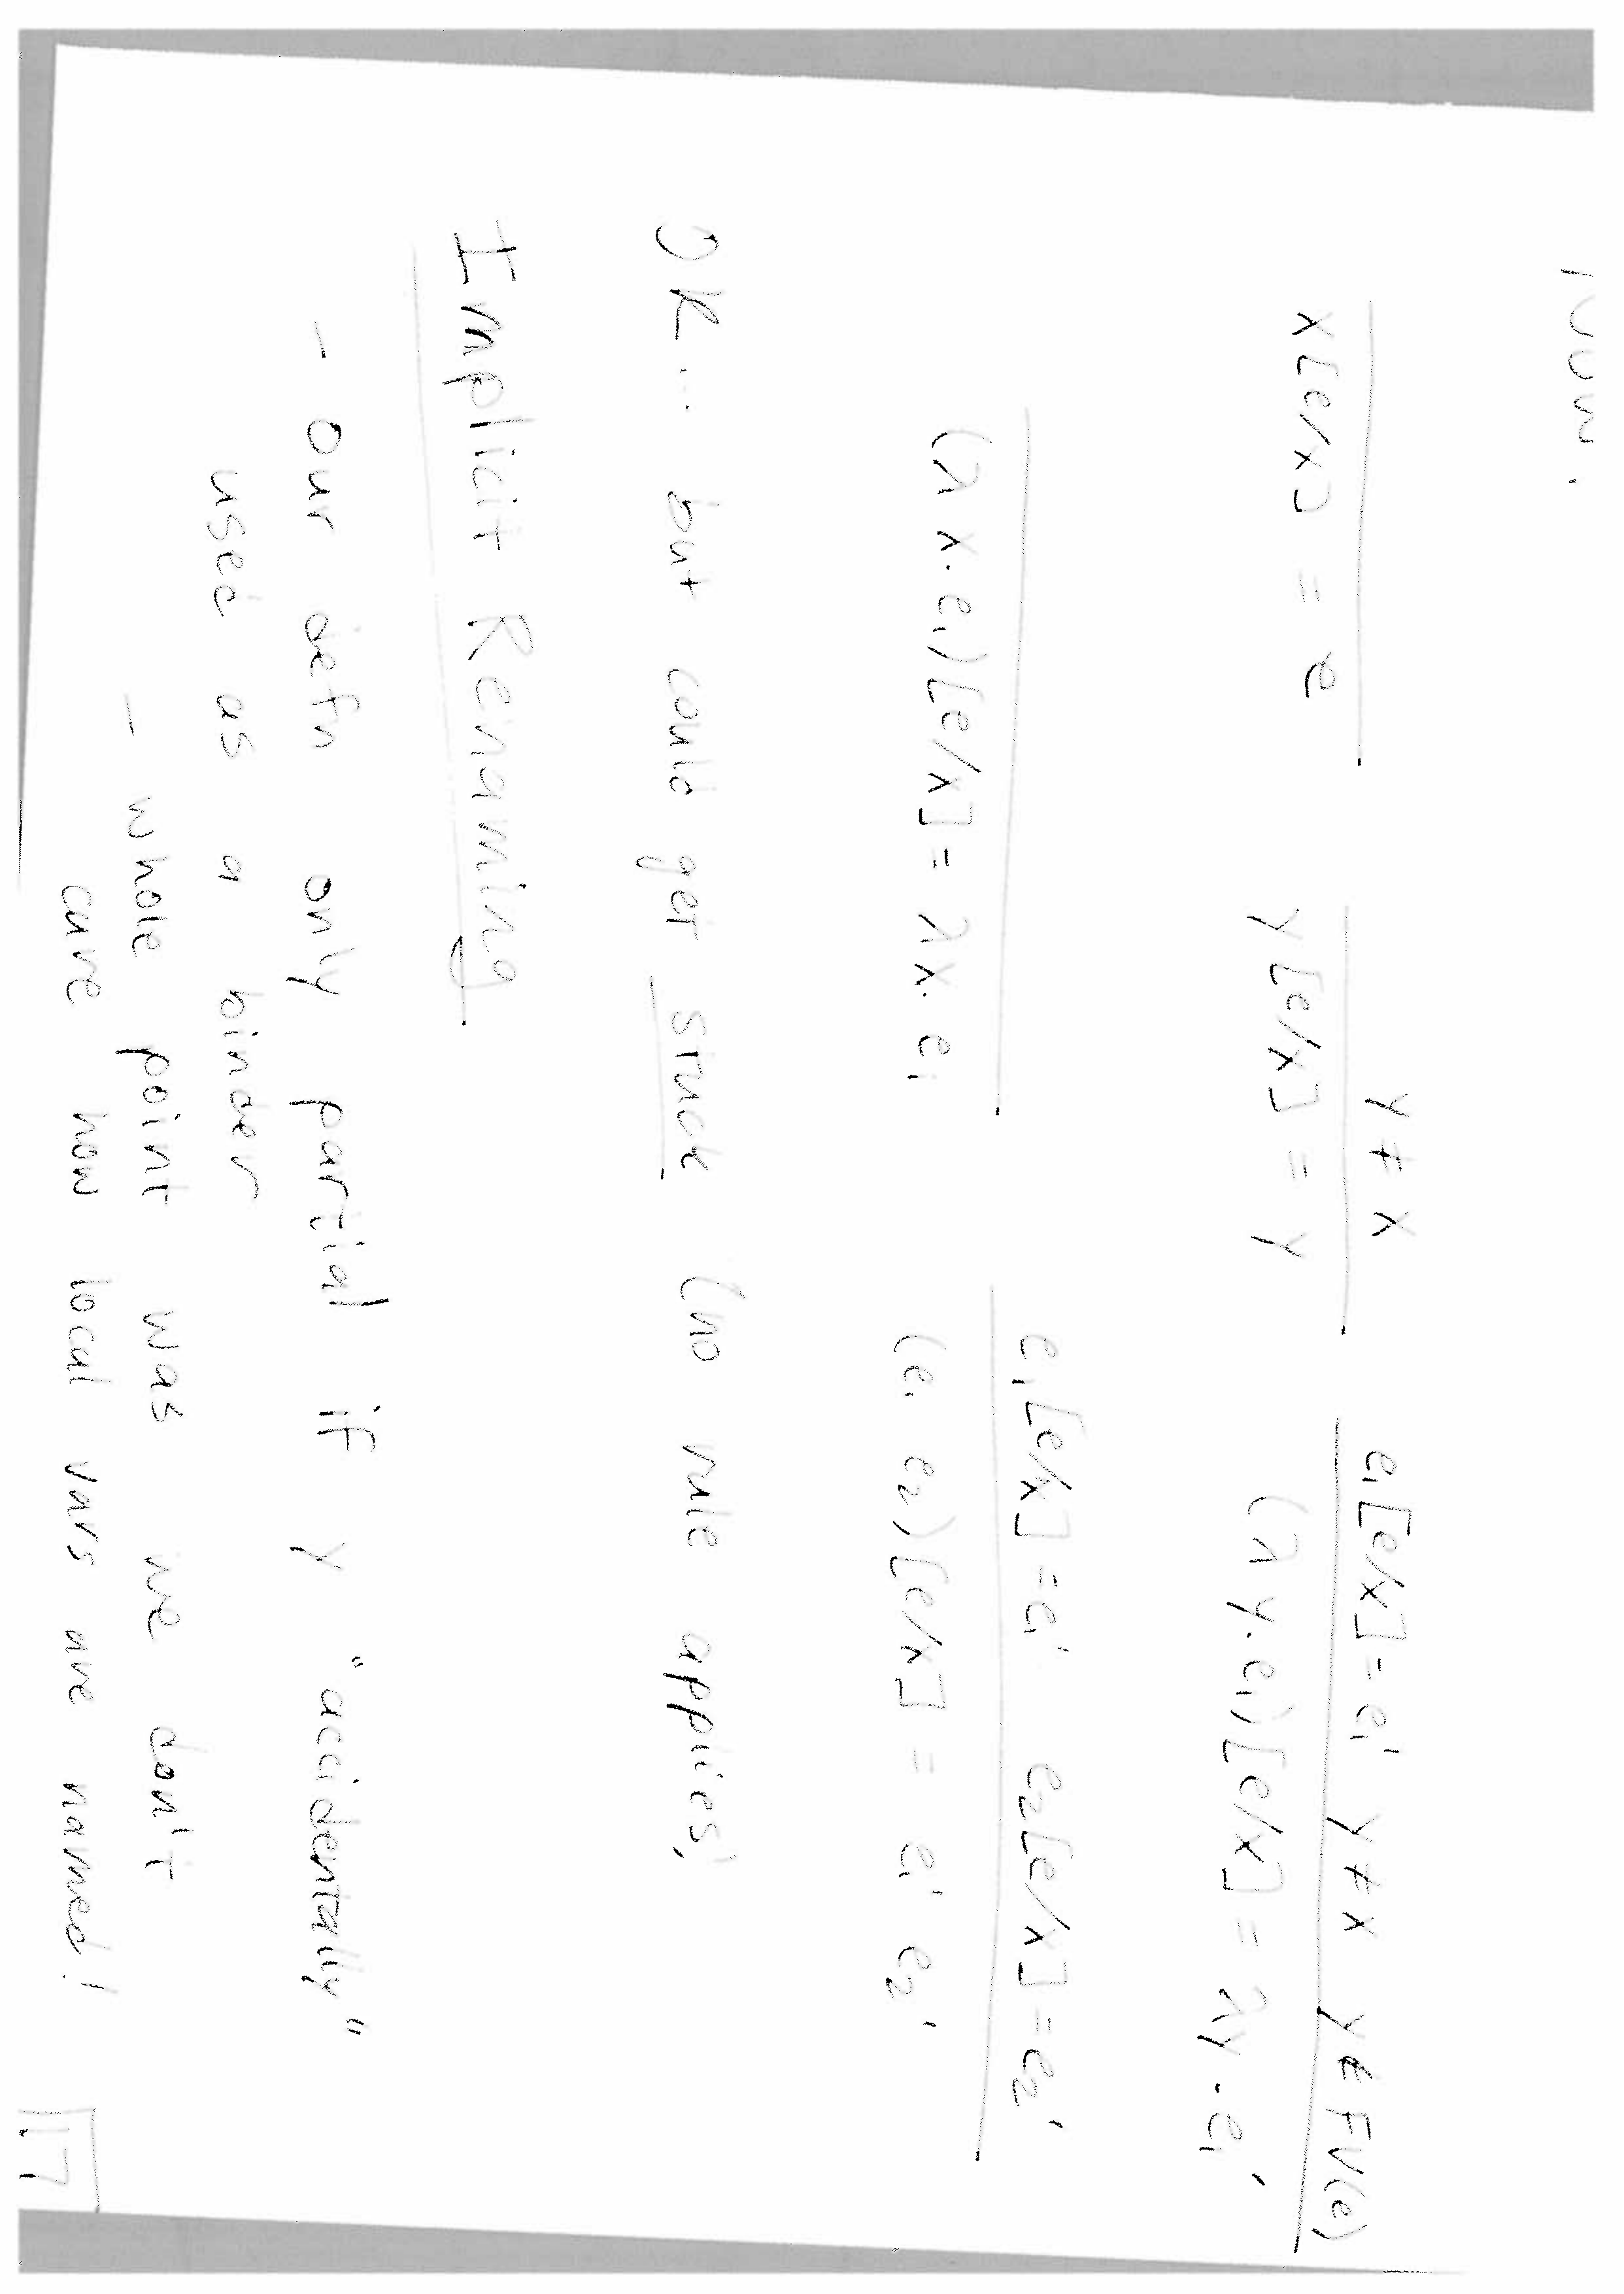 y ≠ x   e₁[e/x] = e₁'   y ≠ x   y ∉ FV(e)
x[e/x] = e   y[e/x] = y   (λy. e₁)[e/x] = λy. e₁'
e₁[e/x] = e₁'   e₂[e/x] = e₂'
(λx. e₁)[e/x] = λx. e₁   (e₁ e₂)[e/x] = e₁' e₂'
OK... but could get stuck (no rule applies)
Implicit Renaming
- our defn only partial if y "accidentally"
used as a binder
- whole point was we don't
care how local vars are named!
17